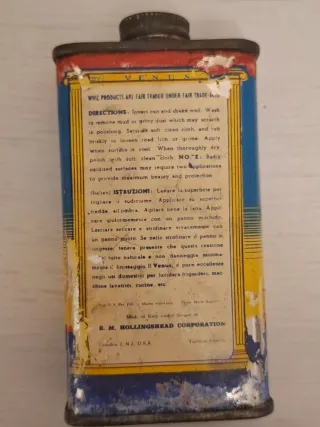 VENUS
WHIZ PRODUCTS ARE FAIR TRADED UNDER FAIR TRADE
DIRECTIONS: Invert can and shake well. Wash
to remove mud or grimy dust which may scratch
in polishing. Saturate soft clean cloth, and rub
briskly to loosen road film or grime. Apply
when surface is cool. When thoroughly dry
polish with soft clean cloth. NOTE: Badly
oxidized surfaces may require two applications
to provide maximum beauty and protection
(Italian) ISTRUZIONI: Lavare la superficie per
togliere il sudiciume. Applicare su superfici
fredde, all'ombra. Agitare bene la latta.
con un panno morbido.
Lasciare seccare e strofinare vivacemente con
un panno
tenere presente che questa
naturale e non danneggia
il Venus, è pure eccellente
negli usi domestici per lucidare frigoriferi,
chine lavatrici, cucine, etc.
Mfd. in Italy under license of
R. M. HOLLINGSHEAD CORPORATION
Camden 2, N.J., U.S.A. Toronto, Canada